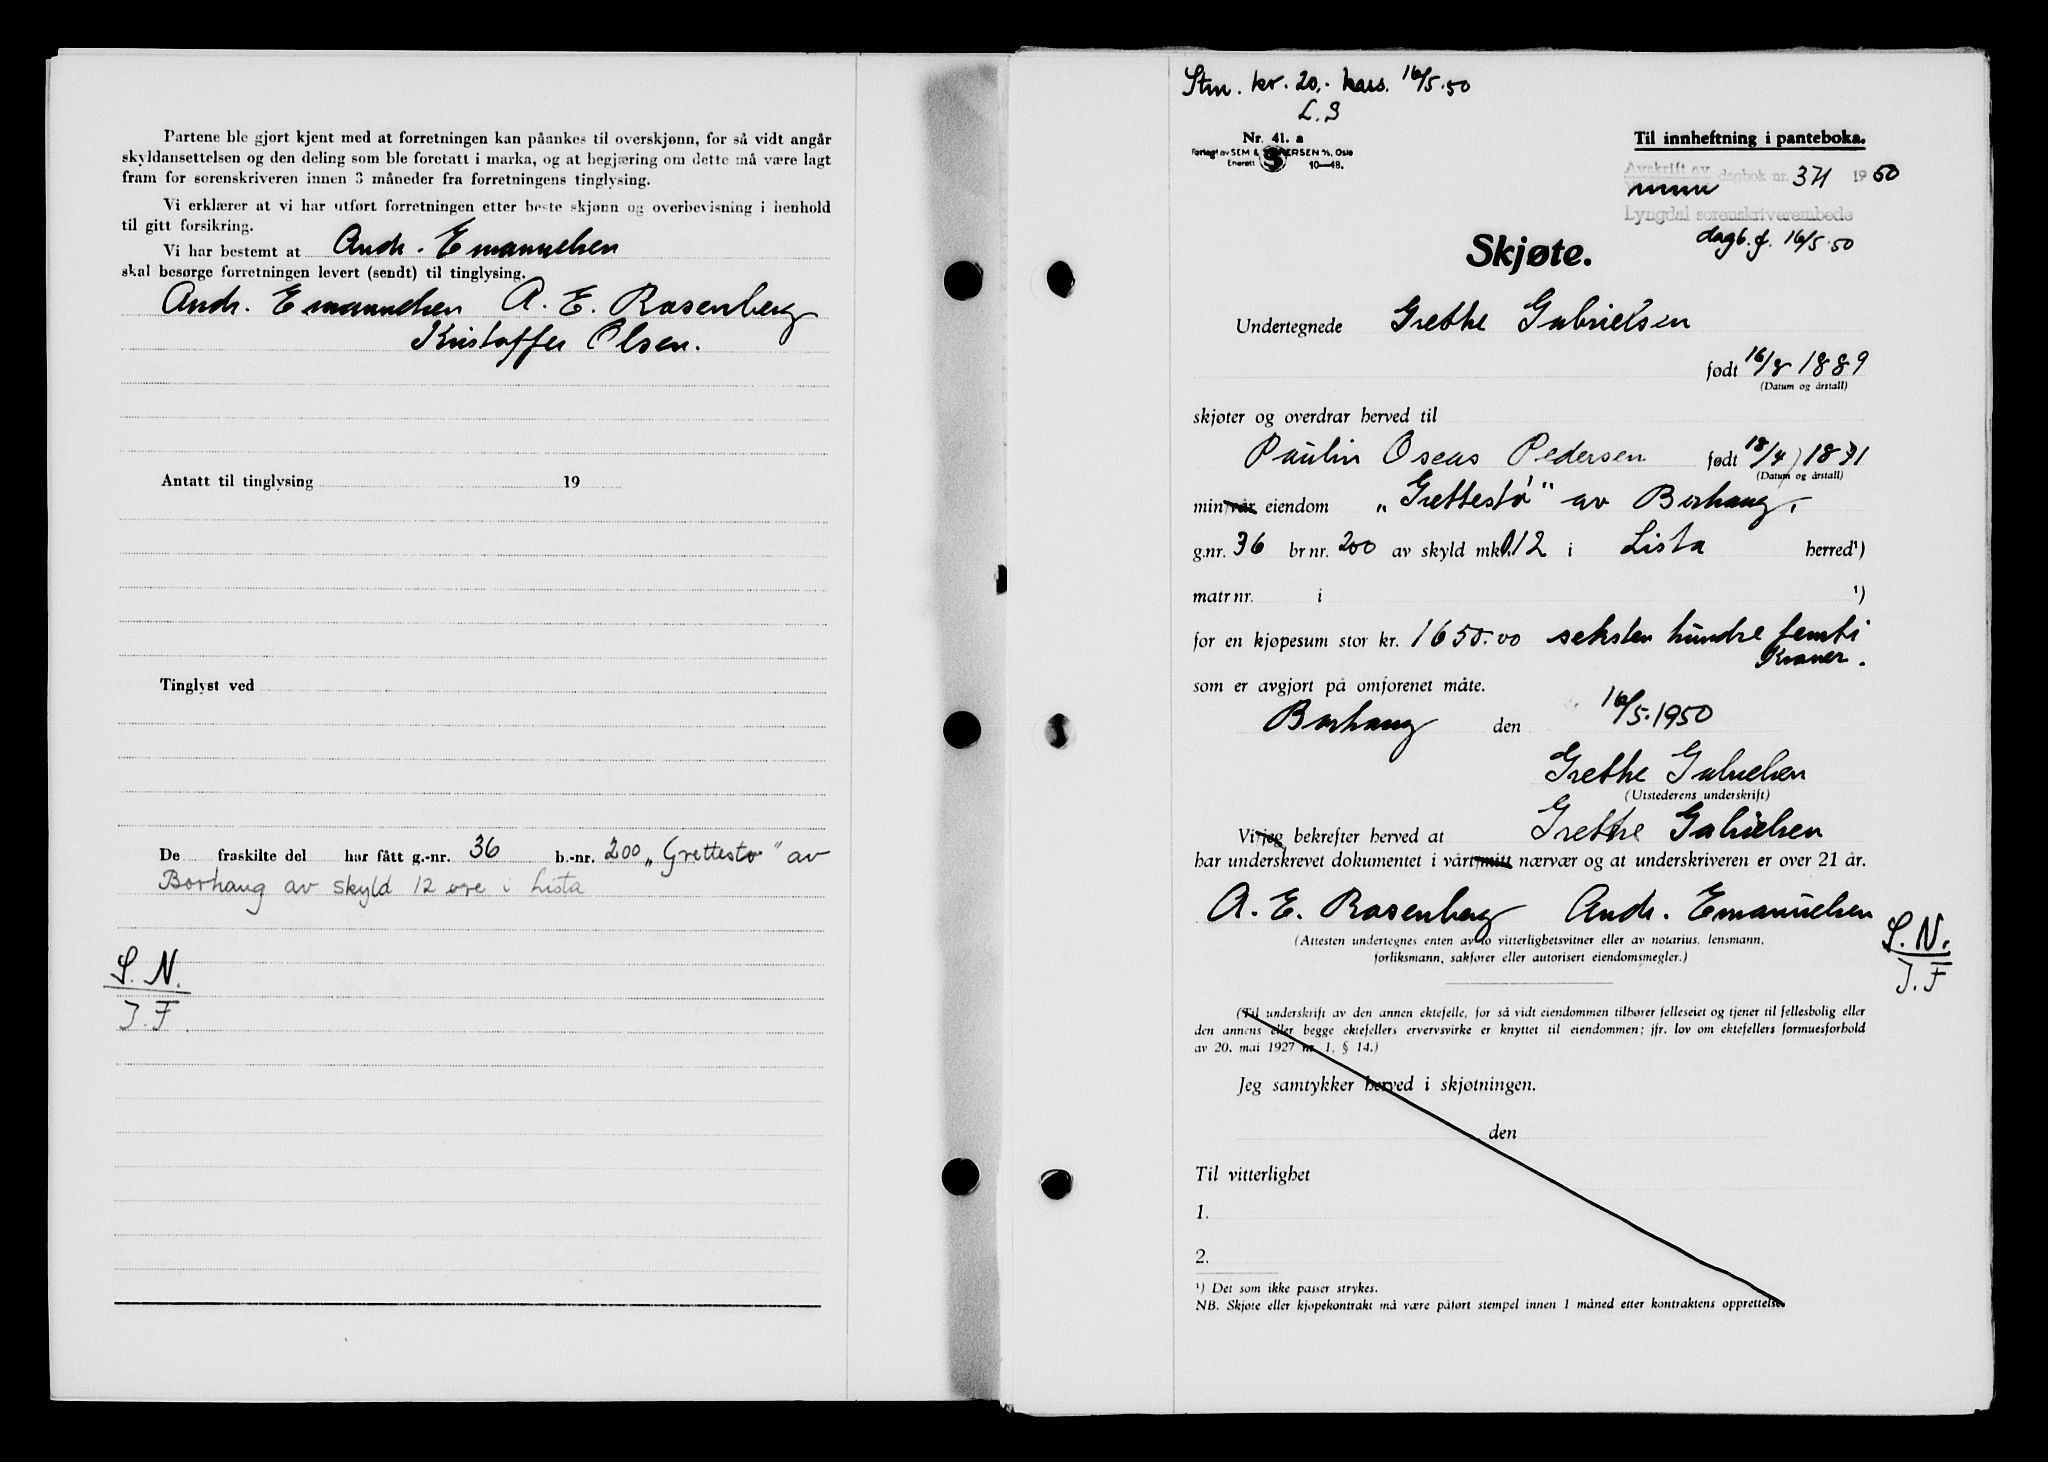 Partene ble gjort kjent med at forretningen kan påankes til overskjønn, for så vidt angår
skyldansettelsen og den deling som ble foretatt i marka, og at begjæring om dette må være lagt
fram for sorenskriveren innen 3 måneder fra forretningens tinglysing.
Vi erklærer at vi har utført forretningen etter beste skjønn og overbevisning i henhold
til gitt forsikring.
Vi har bestemt at Andr. Emanuelsen
skal besørge forretningen levert (sendt) til tinglysing.
Andr. Emanuelsen A. E. Rosenberg
Kristoffer Olsen.
Antatt til tinglysing 19
Tinglyst ved
De fraskilte del har fått g.-nr. 36 b.-nr. 200 „Grettestø" av
Borhaug av skyld 12 øre i Lista
S. N.
J. F.
Stm. kr. 20,- kass. 16/5-50
L. S
Nr. 41. a
Forlagt av SEM & STENERSEN A/S, Oslo
Enerett S 10—48.
Til innheftning i panteboka.
Avskrift av dagbok nr. 371 1950
Lyngdal sorenskriverembede
dagb. f. 16/5-50
Skjøte.
Undertegnede Grethe Gabrielsen
født 16/8 1889
(Datum og årstall)
skjøter og overdrar herved til
Paulin Oseas Pedersen født 18/4 1871
(Datum og årstall)
min/vår eiendom „Grettestø" av Borhaug,
g.nr. 36 br nr. 200 av skyld mk 0.12 i Lista herred¹)
matr nr. i ¹)
for en kjøpesum stor kr. 1650.00 seksten hundre femti
Kroner.
som er avgjort på omforenet måte.
Borhaug den 16/5-1950
Grethe Gabrielsen
(Utstederens underskrift)
Vi/jeg bekrefter herved at Grethe Gabrielsen
har underskrevet dokumentet i vårt/mitt nærvær og at underskriveren er over 21 år.
A. E. Rosenberg Andr. Emanuelsen
S. N.
J. F
(Attesten undertegnes enten av to vitterlighetsvitner eller av notarius, lensmann,
forliksmann, sakfører eller autorisert eiendomsmegler.)
(Til underskrift av den annen ektefelle, for så vidt eiendommen tilhører felleseiet og tjener til fellesbolig eller
den annens eller begge ektefellers ervervsvirke er knyttet til eiendommen; jfr. lov om ektefellers formuesforhold
av 20. mai 1927 nr. 1, § 14.)
Jeg samtykker herved i skjøtningen.
den
Til vitterlighet
1.
2.
¹) Det som ikke passer strykes.
NB. Skjøte eller kjøpekontrakt må være påført stempel innen 1 måned etter kontraktens opprettelse.